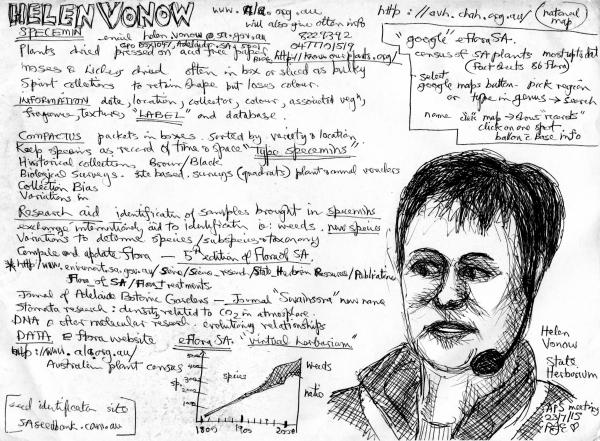 HELEN VONOW
www. ala.org.au
will also give often info
SPECEMIN
email helen.vonow@sa.gov.au 82229342
GPO Box1047, Adelaide SA 5001 0477719519
Plants dried pressed on acid free paper http://knowourplants.org/
Mosses & Lichens dried often in box or sliced as bulky
Spirit collections to retain shape but loses colour.
INFORMATION date, location, collector, colour, associated vegn,
fragrances, textures, "LABEL" and database.
COMPACTUS packets in boxes. Sorted by variety & location
Keep specimins as record of time & space "type specemins".
Historical collections Brown/Black
Biological surveys. site based. surveys (quadrats) plant & animal vouchers
Collection Bias
Variations in
Research aid identification of samples brought in specimins
exchange internationally aid to identification ie: weeds. new species
Variations to determine species/subspecies & taxonomy
Compile and update Flora — 5th edition of Flora of SA.
Flora of SA/Flora_treatments
Journal of Adelaide Botanic Gardens — Journal "Swainsona" new name
Stomata research: density related to CO2 in atmosphere.
DNA & other molecular research. evolutionary relationships
DATA eflora website eFlora SA. "virtual herbarium"
Australian plant census
seed identification site
SAseedbank.com.au
species
weeds
native
sp.
5000
4000
3000
2000
1000
1800 1900 2000
http://avh.chah.org.au/ (national map)
"google" eFlora SA.
census of SA plants most up to date
(Part beats 86 Flora)
select
google maps button - pick region
or type in genus → search
name click map → shows "records"
click on one spot
back on → base info
Helen
Vonow
State
Herbarium
APS meeting
23/7/15